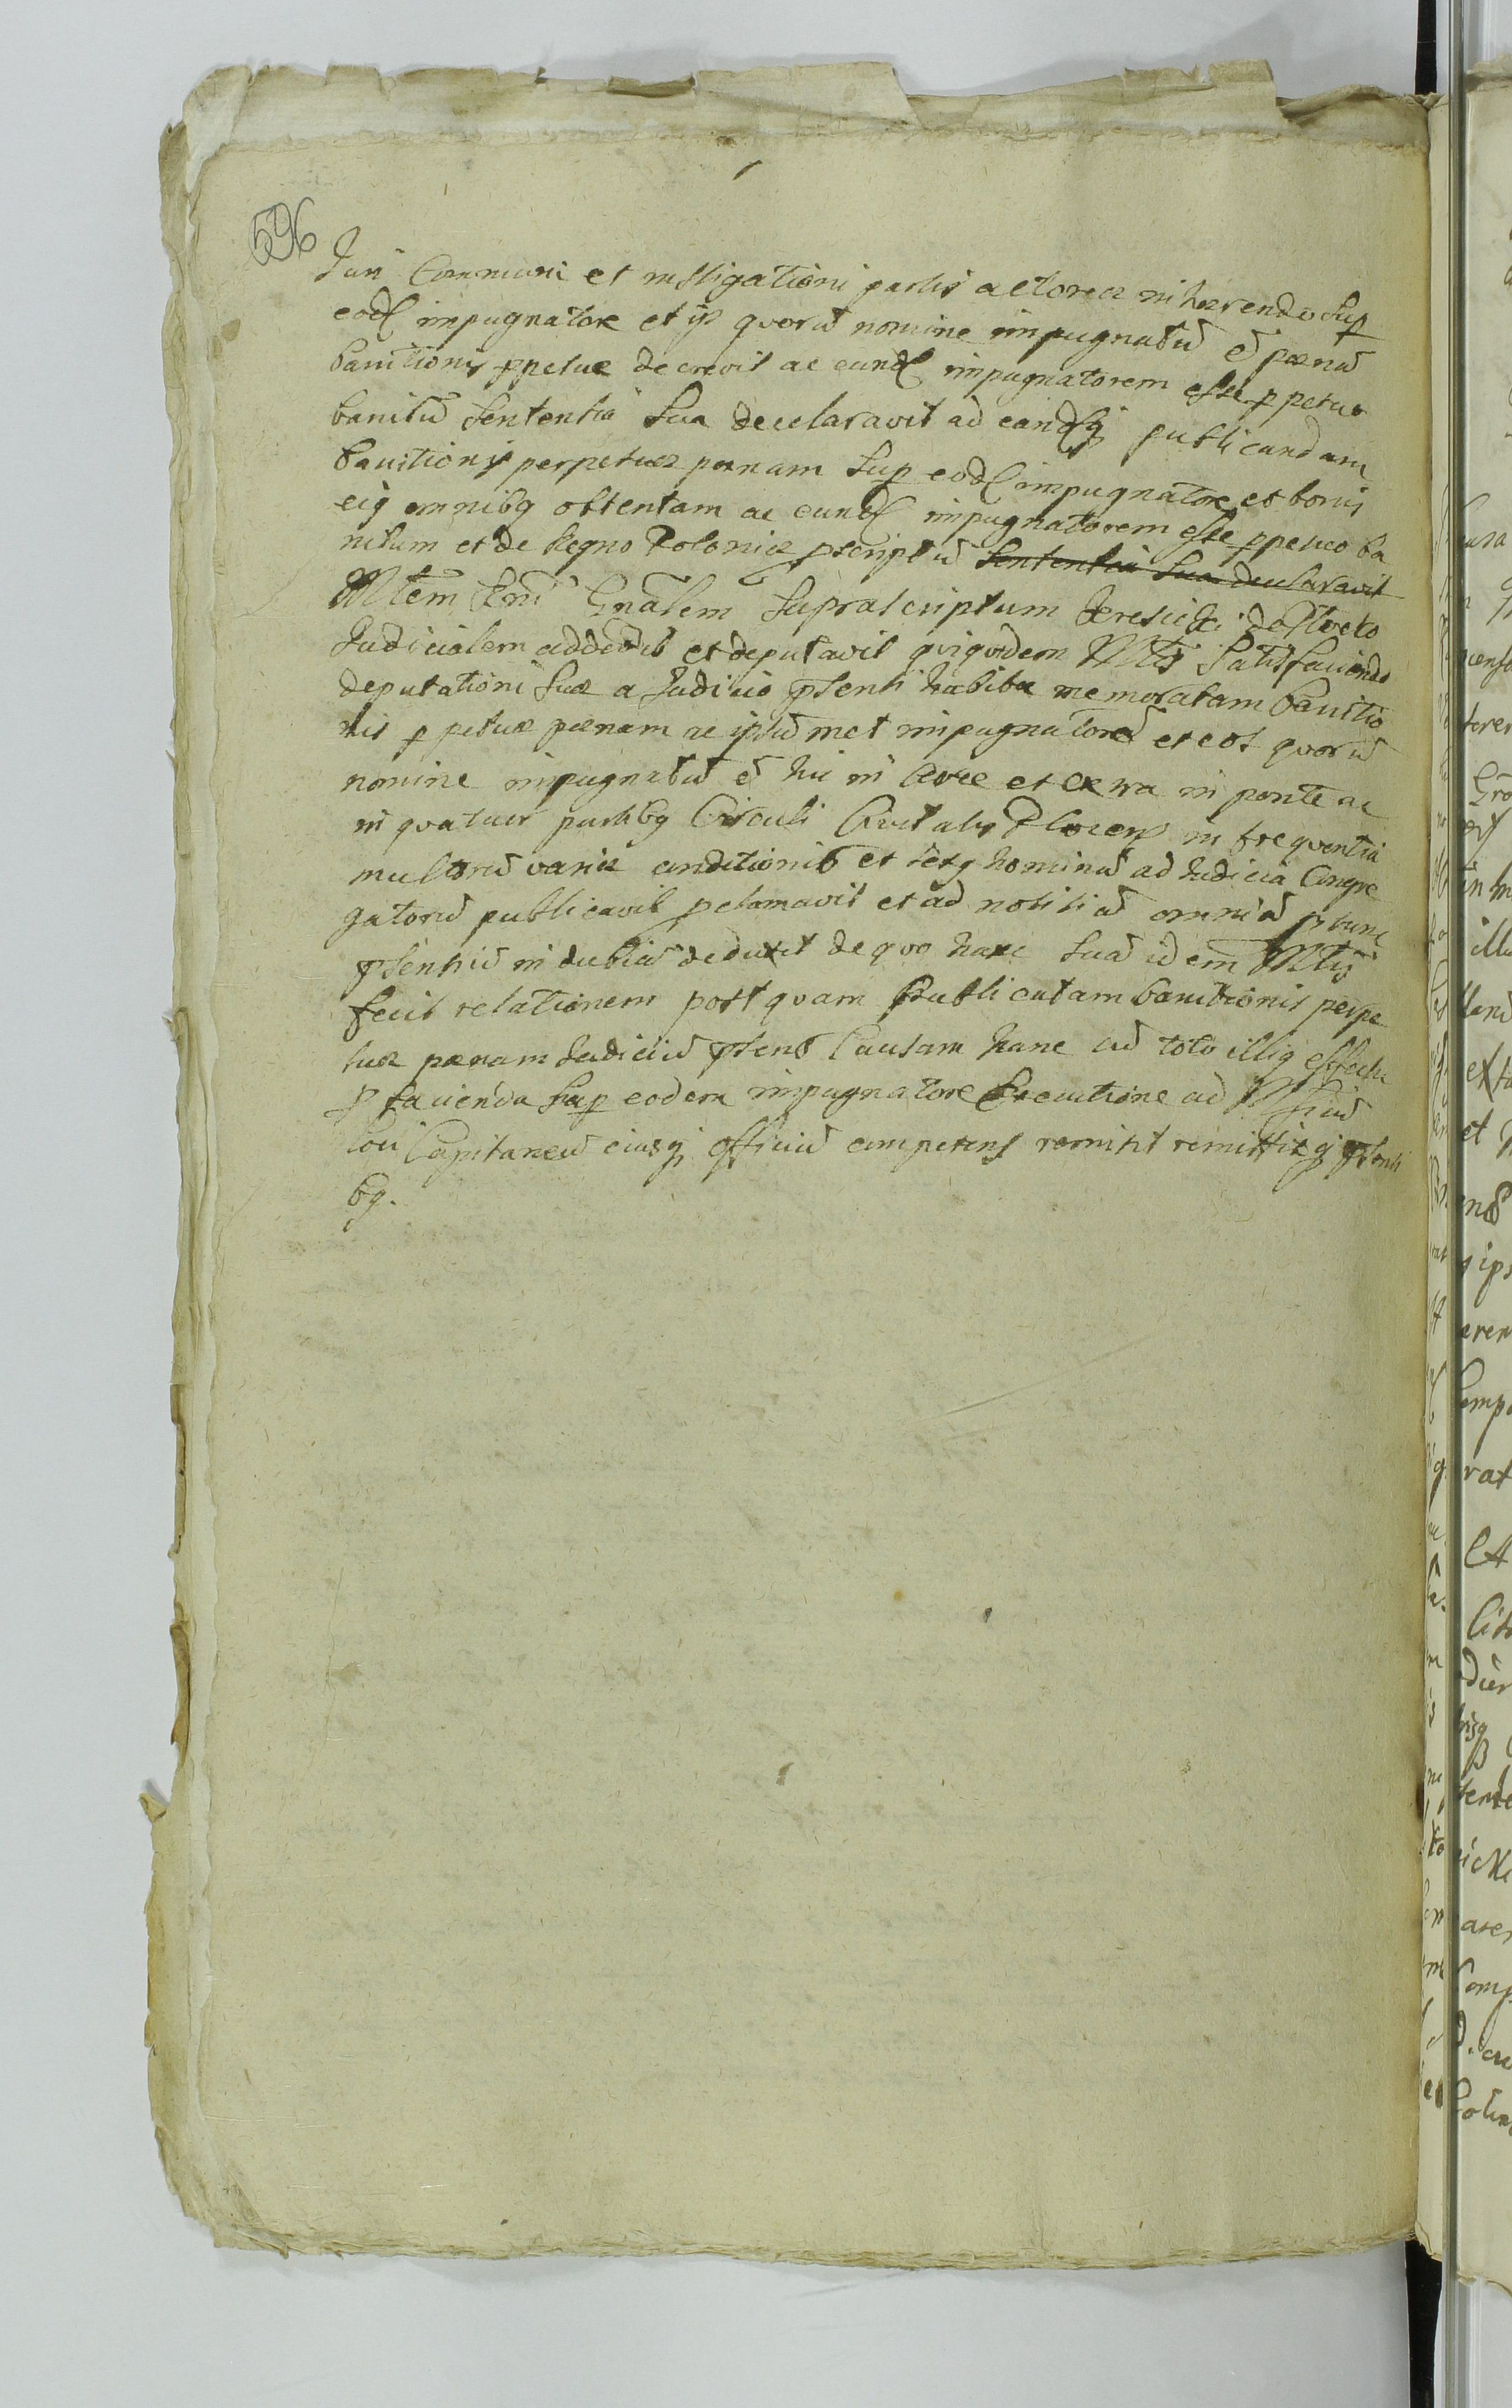 596
Juri Communi et instigationi partis actoreæ inhærendo sup
eod impugnatore et iis quorū nomine impugnatū ē pœnā
banitionis ppetuæ decrevit ac eund impugnatorem esse ppetuo
banitū sententia sua declaravit ad eandq publicandam
banitionis perpetuæ pœnam sup eod impugnatore et bonis
eiq omnibq obtentam ac eund impugnatorem esse ppetuo ba
nitum et de Regno Poloniæ pscriptū sententia sua declaravit
Mtem Gnālem suprascriptum de
Judicialem addidit et deputavit quiquidem Mtis satisfaciendo
deputationi suæ a Judicio psenti habitæ memoratam banitio
nis ppetuæ pœnam ac ipsūmet impugnatorē et eos quorū
nomine impugnatū ē hic in Arce et extra in ponte ac
in quatuor partibq Circuli Civitatis Plocen in frequentia
multorū variæ conditionis et sexq hominū ad Judicia Congre
gatorū publicavit pclamavit et ad notitiā omniū ptunc
psentiū indubiā deduxit de quo hanc suā idem Mtis
fecit relationem postquam publicatam banitionis perpe
tuæ pœnam Judiciū psens Causam hanc cū toto illiq effectu
p facienda sup eodem impugnatore Executione ad
loci Capitaneū eiusq officiū competens remisit remittitq psenti
bq.